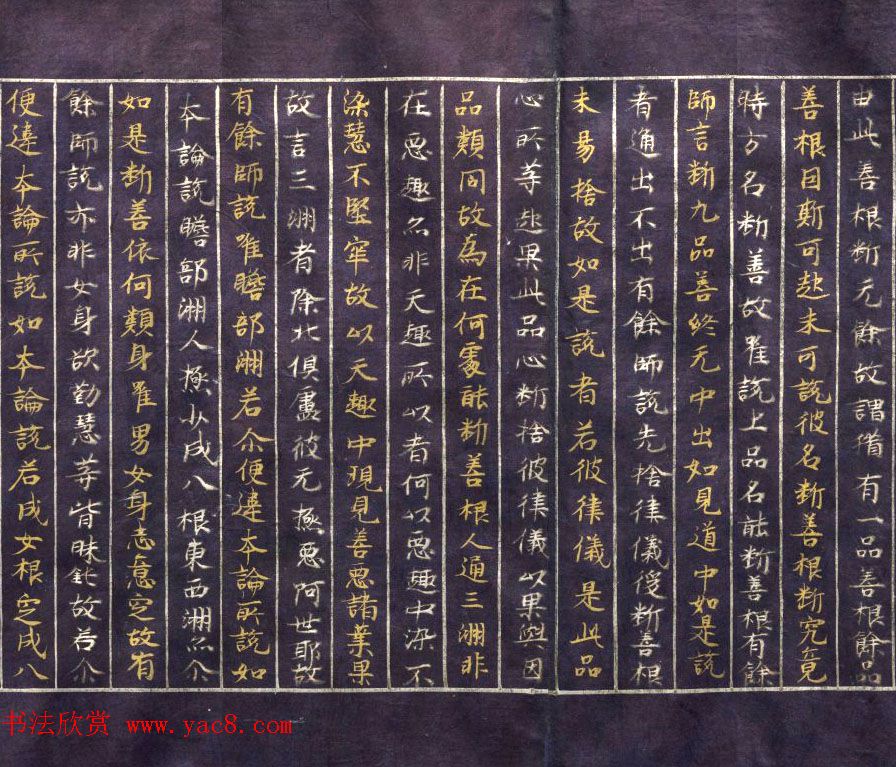 由此善根斷无餘故謂猶有一品善根餘品
善根因斯可起未可說彼名斷善根斷究竟
時方名斷善故唯說上品名能斷善根有餘
師言斷九品善終无中出如見道中如是說
者通出不出有餘師說先捨律儀後斷善根
未易捨故如是說者若彼律儀是此品
心所等起果此品心斷捨彼律儀以果與因
品類同故為在何處能斷善根人通三洲非
在惡趣亦非天趣所以者何以惡趣中染不
染慧不堅牢故以天趣中現見善惡諸業果
故言三洲者除北俱盧彼无極惡阿世耶故
有餘師說唯贍部洲若尒便違本論所說如
本論說贍部洲人極少成八根東西洲亦尒
如是斷善依何類身唯男女身志意定故有
餘師說亦非女身欲勤慧等皆昧鈍故若尒
便違本論所說如本論說若成女根定成八
书法欣赏 www.yac8.com